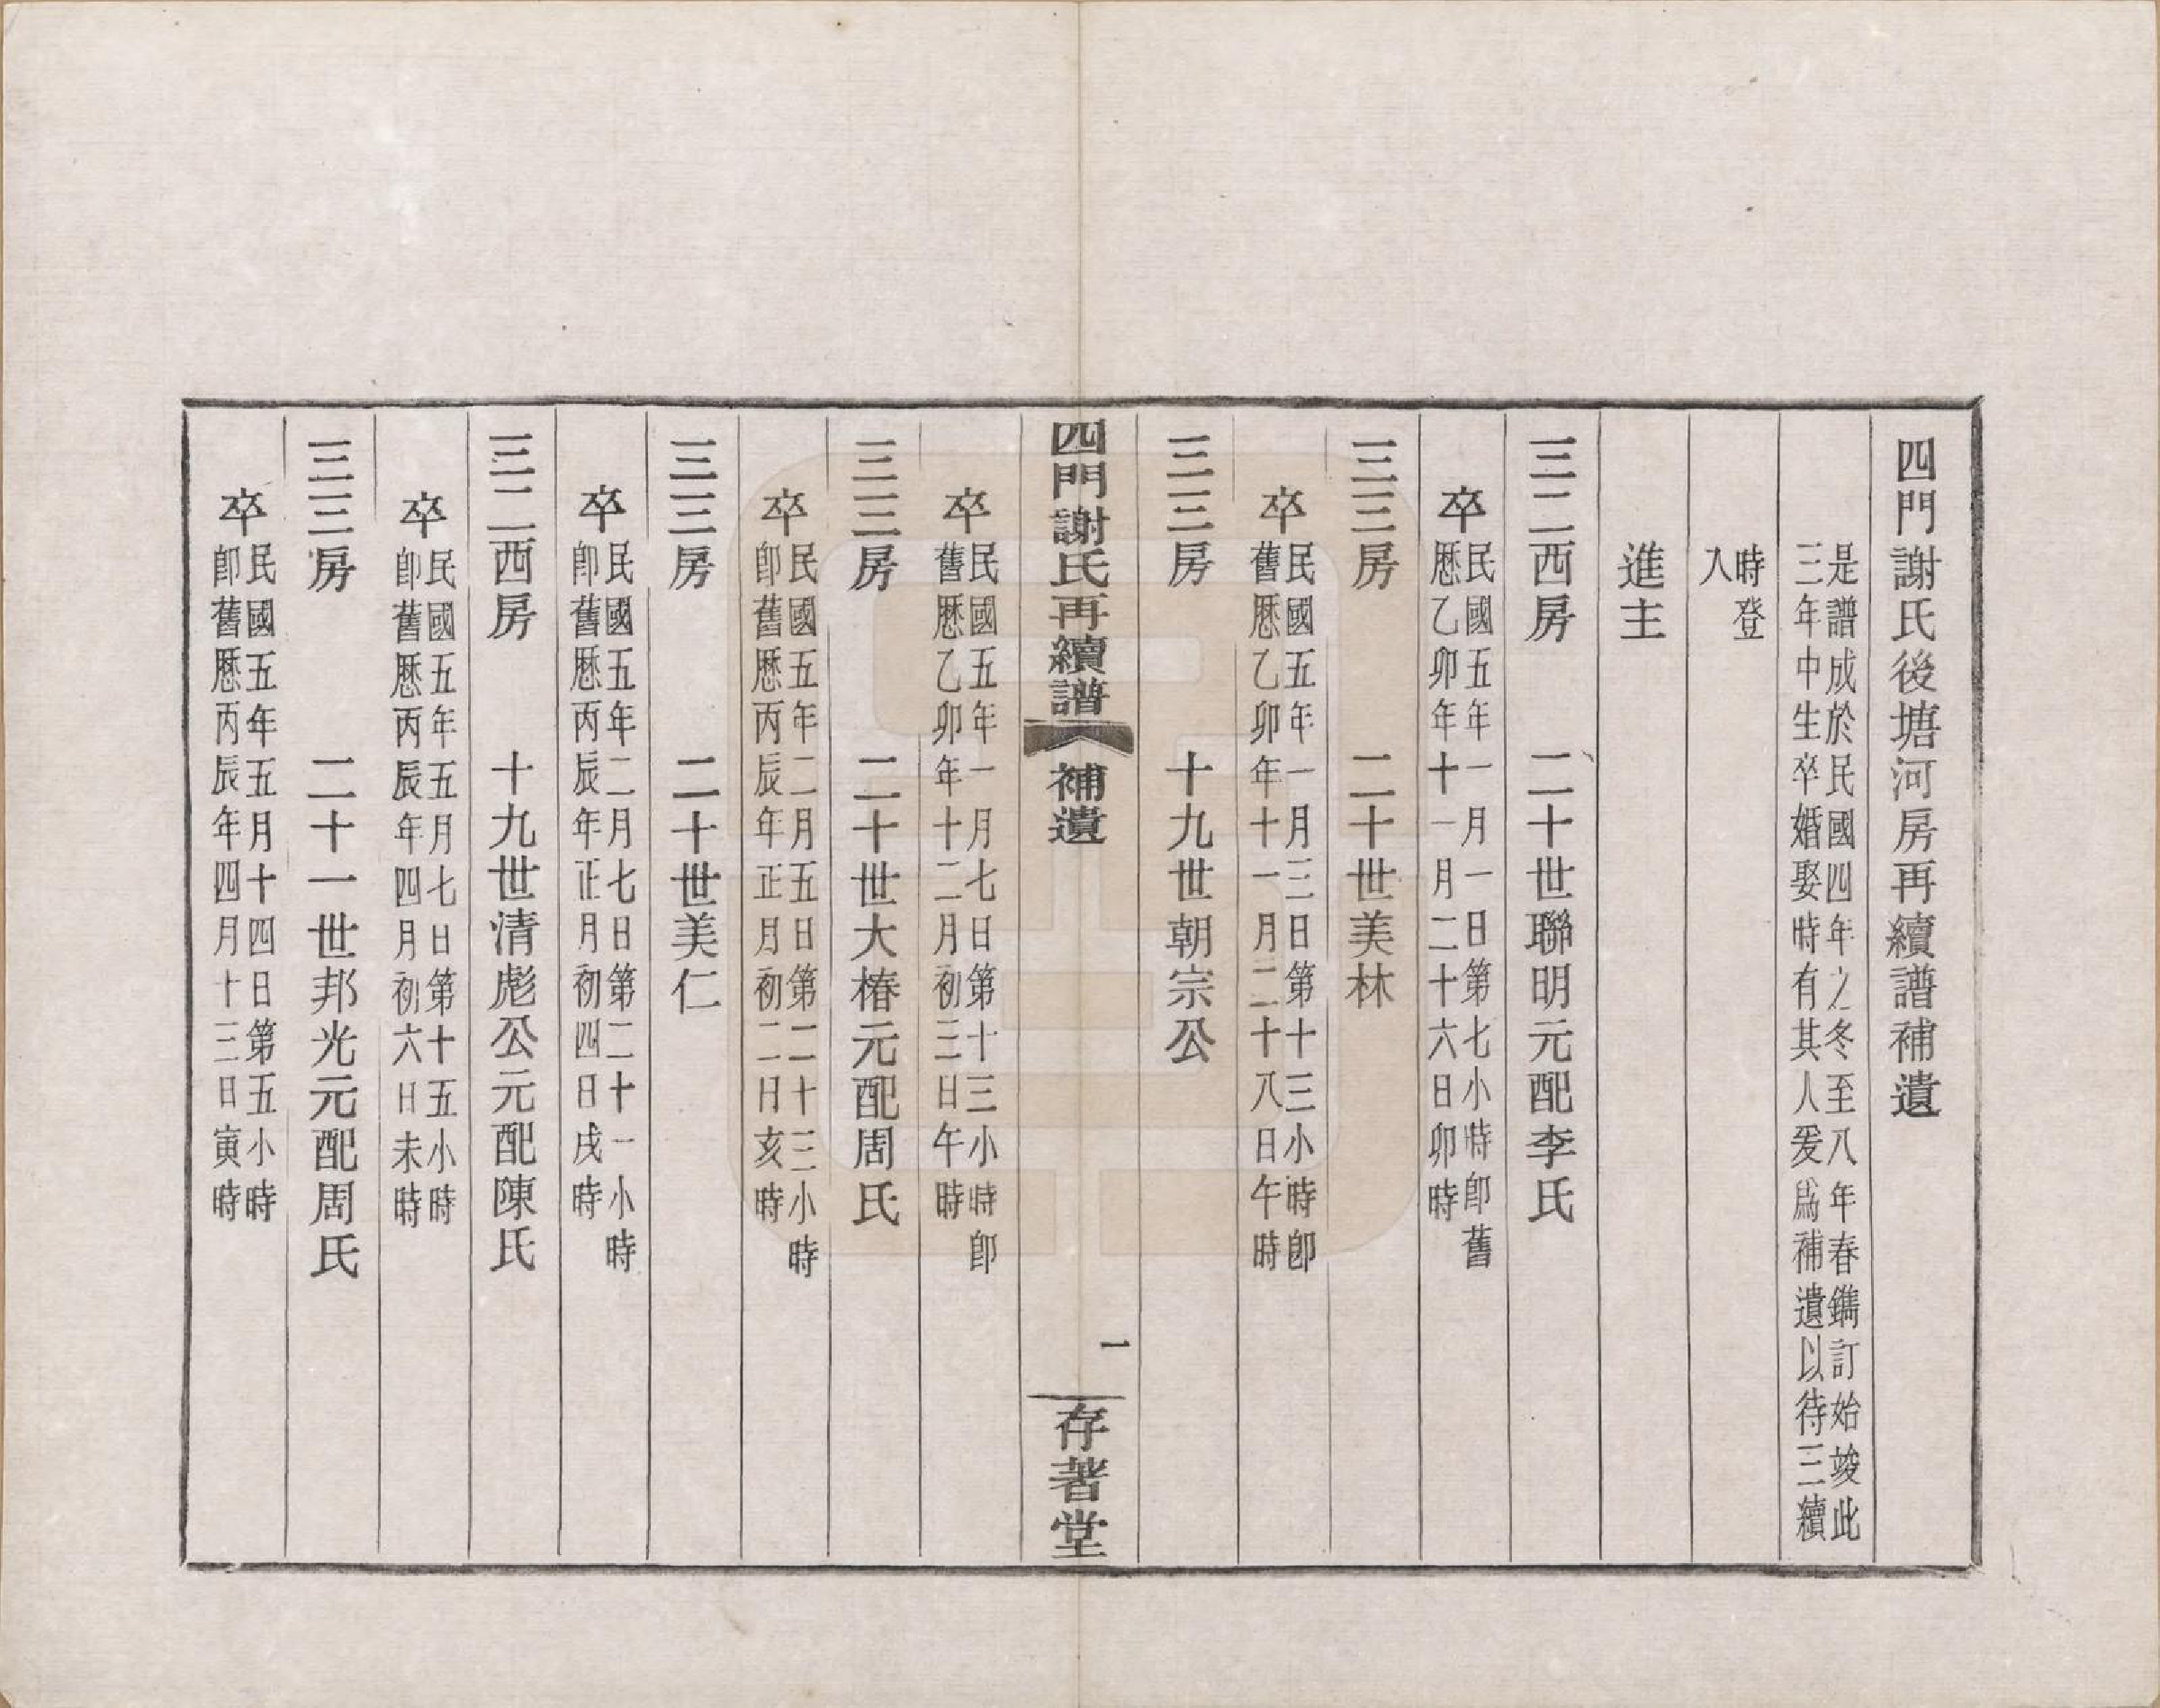 四門謝氏後塘河房再續譜補遺
是譜成於民國四年之冬至八年春鐫訂始竣此
三年中生卒婚娶時有其人爰爲補遺以待三續
時登
入
進主
三二西房　二十世聯明元配李氏
卒民國五年一月一日第七小時卽舊
歷乙卯年十一月二十六日卯時
三三房　二十世美林
卒民國五年一月三日第十三小時卽
舊歷乙卯年十一月二十八日午時
三三房　十九世朝宗公
四門謝氏再續譜　補遺　一　存著堂
卒民國五年一月七日第十三小時卽
舊歷乙卯年十二月初三日午時
三三房　二十世大椿元配周氏
卒民國五年二月五日第二十三小時
卽舊歷丙辰年正月初二日亥時
三三房　二十世美仁
卒民國五年二月七日第二十一小時
卽舊歷丙辰年正月初四日戌時
三二西房　十九世清彪公元配陳氏
卒民國五年五月七日第十五小時
卽舊歷丙辰年四月初六日未時
三三房　二十一世邦光元配周氏
卒民國五年五月十四日第五小時
卽舊歷丙辰年四月十三日寅時